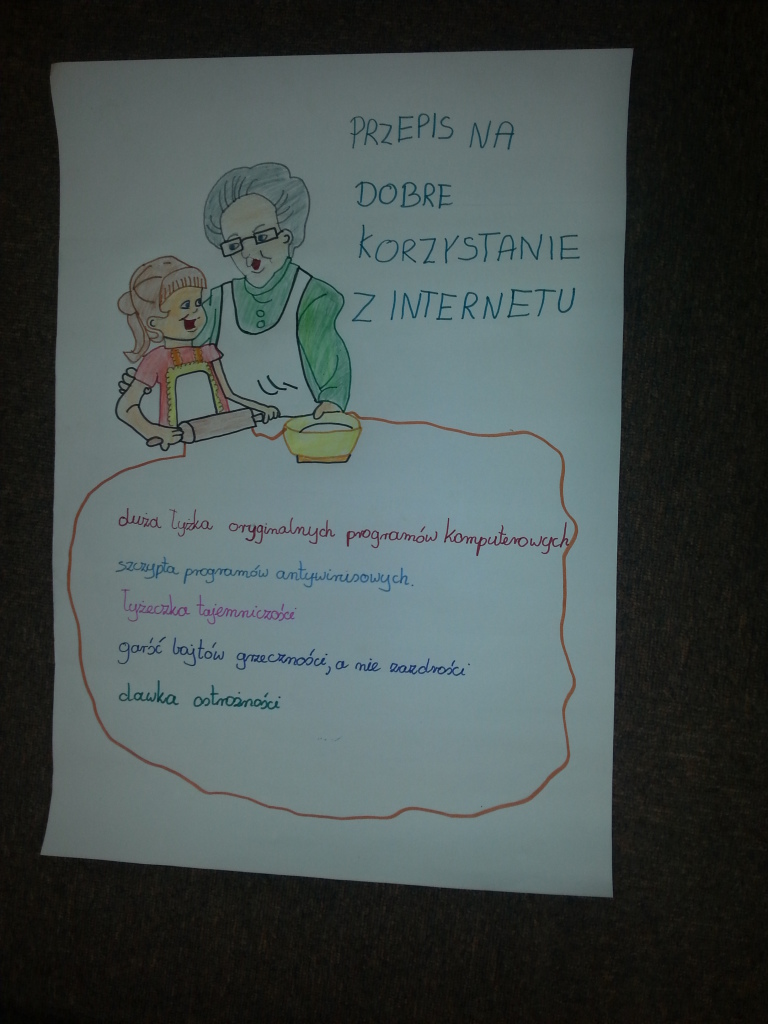 PRZEPIS NA
DOBRE
KORZYSTANIE
Z INTERNETU
duża łyżka oryginalnych programów komputerowych
szczypta programów antywirusowych.
łyżeczka tajemniczości
garść bajtów grzeczności, a nie zazdrości
dawka ostrożności